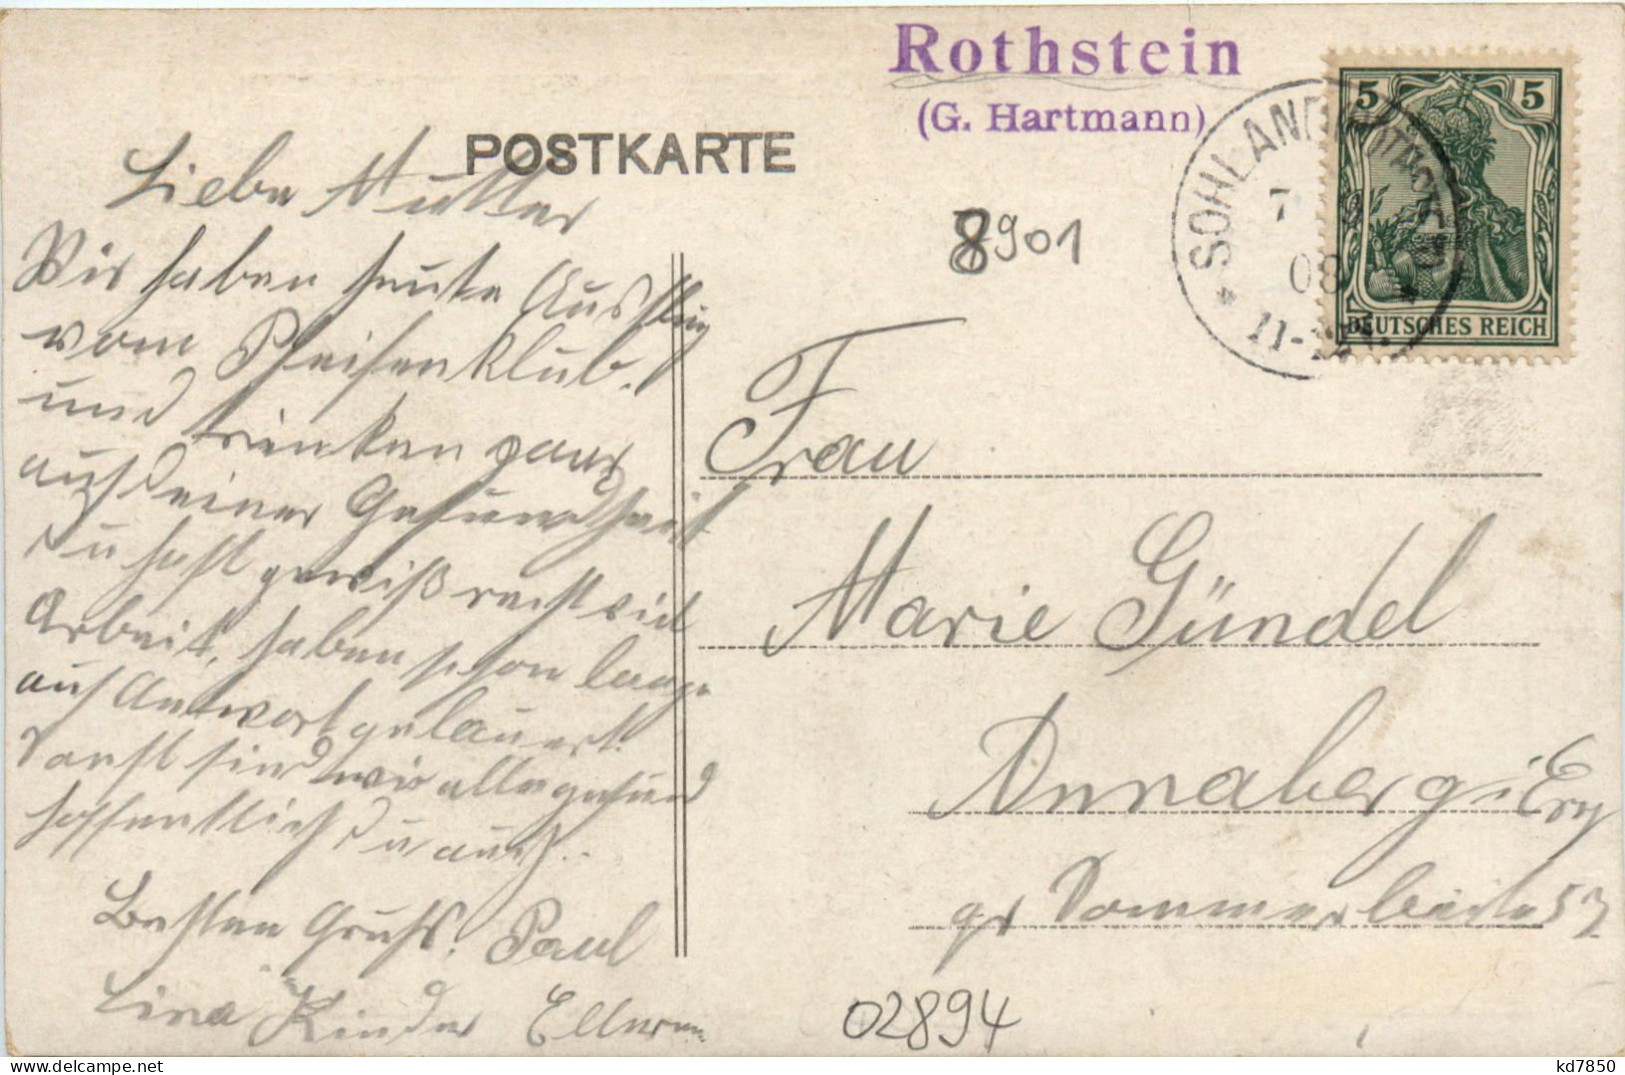 Rothstein
(G. Hartmann)
POSTKARTE
5 5
DEUTSCHES REICH
SOHLAND
7
08
11-12
8901
Liebe Mutter
Wir haben heute Ausflug
vom Pfeifenklub.
und trinken ganz
auf deiner Gesundheit
Du hast gewiß recht viel
Arbeit, haben schon lange
auf Antwort gelauert.
Sonst sind wir alle gesund
hoffentlich Du auch.
Besten Gruß. Paul
Lina Kinder
Frau
Marie Gündel
Annaberg i Erzg
gr Sommerleite 57
02894
kd7850